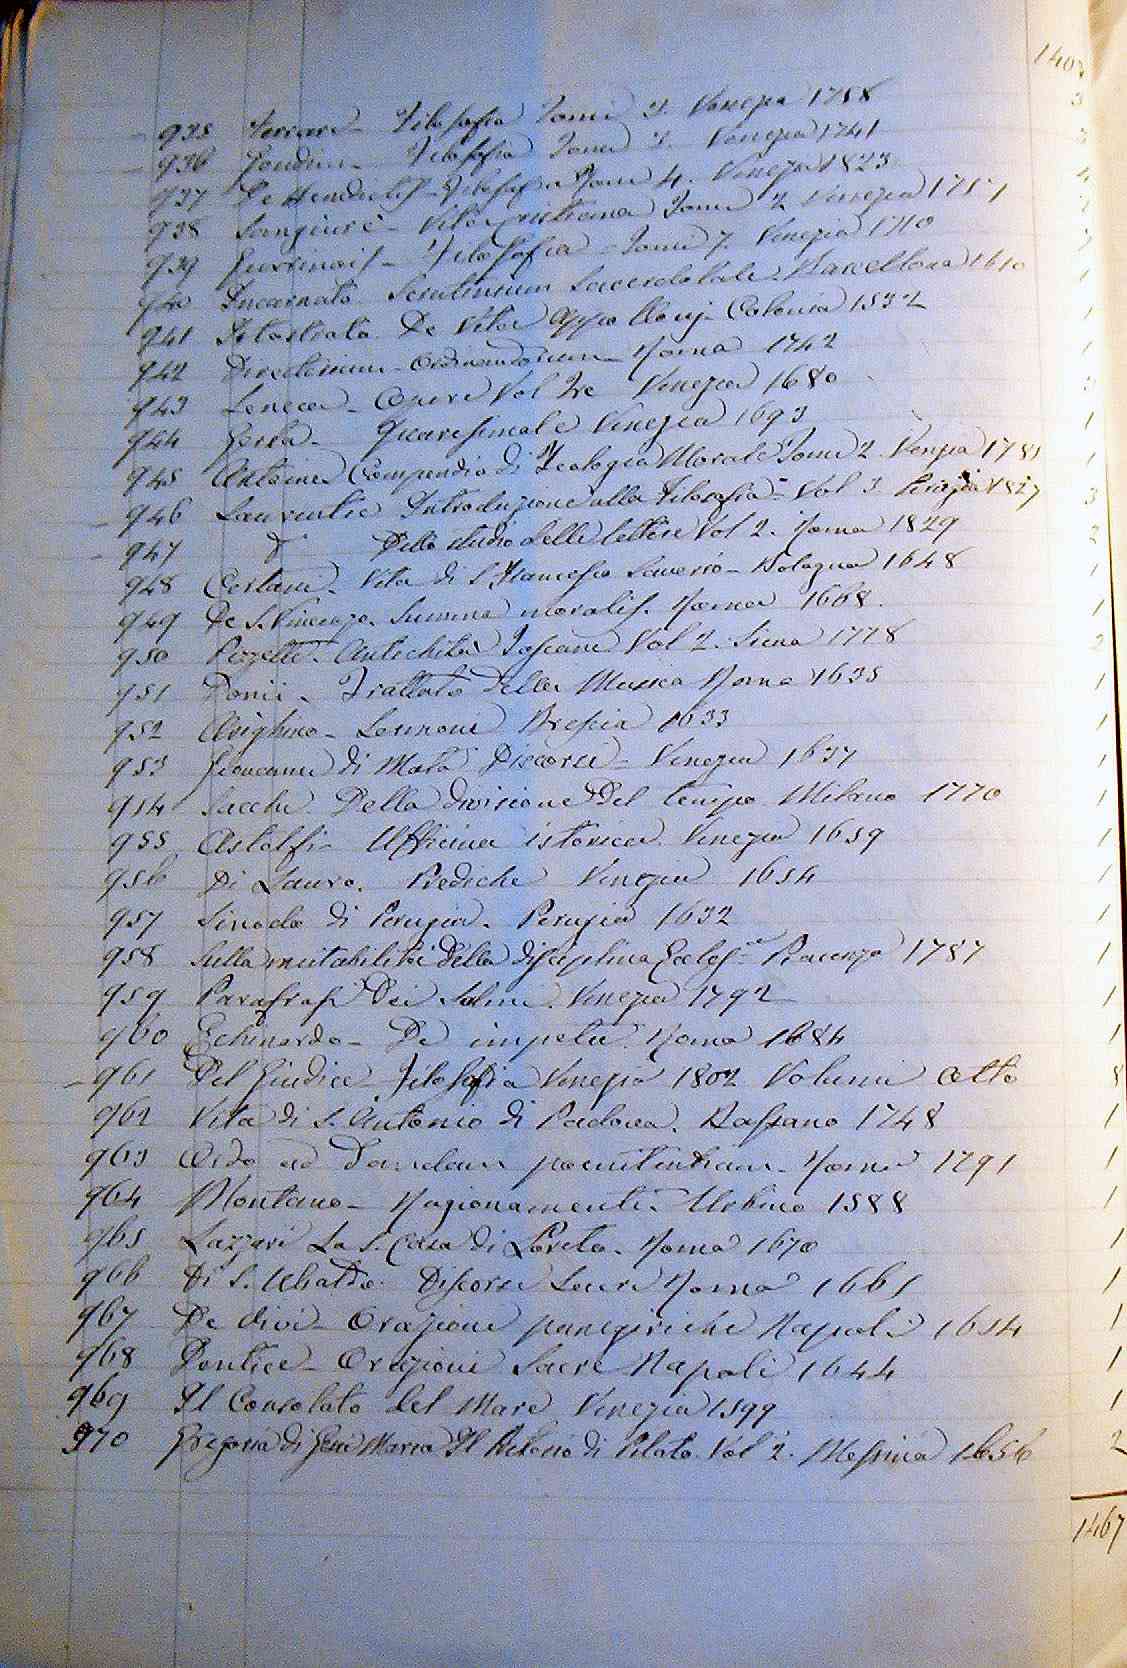 140
935 Ferrari - Filosofia Tomi 3. Venezia 1758 3
936 Goudin - Filosofia Tomi 3. Venezia 1741 3
937 De Hendelis - Filosofia Tomi 4. Venezia 1823 4
938 Sangiurè - Vita Cristiana Tomi 2 Venezia 1757
939 Filosofia - Tomi 7. Venezia 1710 7
940 Incarnato Scrutinium Sacerdotale. Barcellona 1610 1
941 Filostrato De Vita Appollonij - Colonia 1532 1
942 Directorium - Ordinandorum - Roma 1742 1
943 Seneca - Opere Vol Tre Venezia 1680 3
944 Gerla - Quaresimale Venezia 1693 1
945 Antoine Compendio di Teologia Morale Tomi 2 Venezia 178 1
946 Laurentie Introduzione alla Filosofia - Vol 3 1827 3
947 D Dello studio delle lettere Vol 2. Roma 1829 2
948 Certani - Vita di S Francesco Saverio - Bologna 1648 1
949 De S. Vincenzo. Summa moralis. Roma 1668. 1
950 Pizzetti - Antichità Toscane Vol 2. Siena 1778 2
951 Donii - Trattato della Musica Roma 1635 1
952 Arighino - Sermone Brescia 1633 1
953 Giovanni di Mata Discorsi - Venezia 1637 1
954 Sacchi Della divisione del tempo Milano 1770 1
955 Astolfi - Officina istorica Venezia 1659 1
956 Di Lauro. Prediche Venezia 1654 1
957 Sinodo di Perugia. Perugia 1632 1
958 Sulla mutabilità della disciplina Eccles.ca Piacenza 1787 1
959 Parafrasi Dei Salmi. Venezia 1792 1
960 Echinardo - De impetu Roma 1684 1
961 Del Giudice - Filosofia Venezia 1802 Volumi otto 8
962 Vita di S. Antonio di Padova. Bassano 1748 1
963 Ordo ad Dandam poenitentiam - Roma 1791 1
964 Montano - Ragionamenti. Urbino 1588 1
965 Lazzari La S. Casa di Loreto. Roma 1670 1
966 Di S. Ubaldo. Discorsi Sacri Roma 1661 1
967 De divi - Orazione panegiriche Napoli 1654 1
968 Pontice - Orazioni Sacre Napoli 1644 1
969 Il Consolato del Mare Venezia 1599 1
970 Gregorio di Gesù Maria Il Pretorio di Pilato. Vol 2. Messina 1656 2
1467